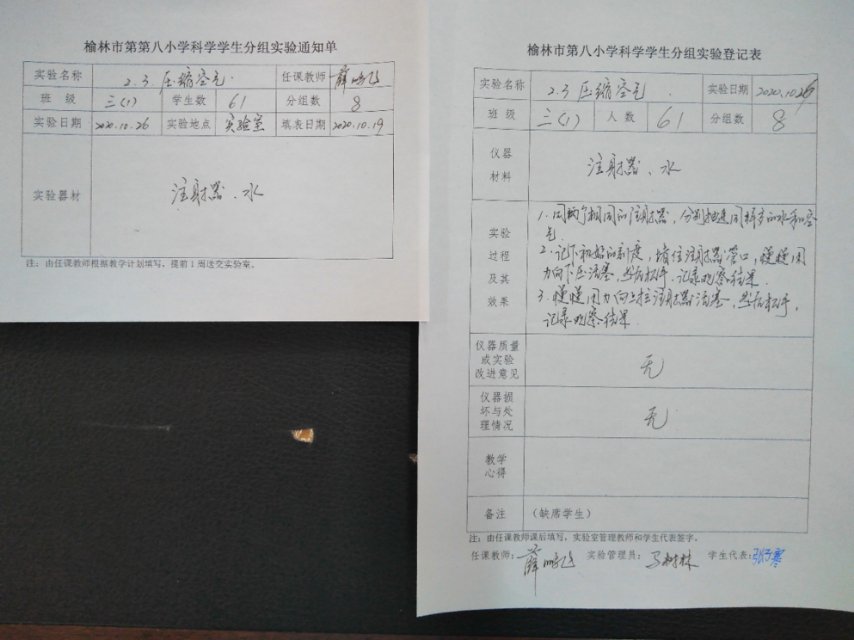 榆林市第第八小学科学学生分组实验通知单
实验名称 2.3 压缩空气. 任课教师
班 级 三(1) 学生数 61 分组数 8
实验日期 2020.10.26 实验地点 实验室 填表日期 2020.10.19
实验器材 注射器、水
注：由任课教师根据教学计划填写，提前1周送交实验室。
榆林市第第八小学科学学生分组实验登记表
实验名称 2.3 压缩空气. 实验日期 2020.10.26
班 级 三(1) 人 数 61 分组数 8
仪器
材料
注射器、水
实验
过程
及其
效果
1. 用两个相同的注射器，分别抽进同样多的水和空
气.
2. 记下初始的刻度，堵住注射器管口，慢慢用
力向下压活塞，然后松手.记录观察结果.
3. 慢慢用力向上拉注射器活塞，然后松手，
记录观察结果.
仪器质量
或实验
改进意见
无
仪器损
坏与处
理情况
无
教学
心得
备注 （缺席学生）
注：由任课教师课后填写，实验室管理教师和学生代表签字。
任课教师： 实验管理员： 马树林 学生代表：